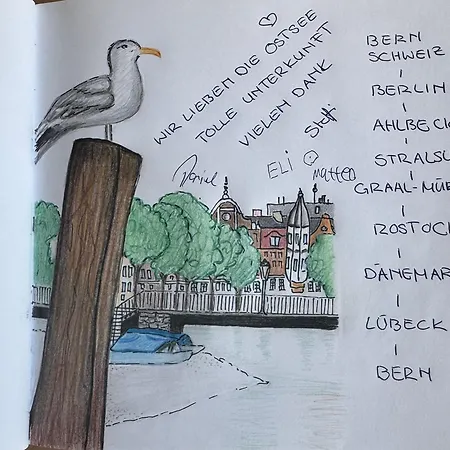 WIR LIEBEN DIE OSTSEE
TOLLE UNTERKUNFT
VIELEN DANK
Steffi
Daniel
ELI
matteo
BERN
SCHWEIZ
BERLIN
AHLBECK
STRALSU
GRAAL-MÜ
ROSTOCK
DÄNEMAR
LÜBECK
BERN